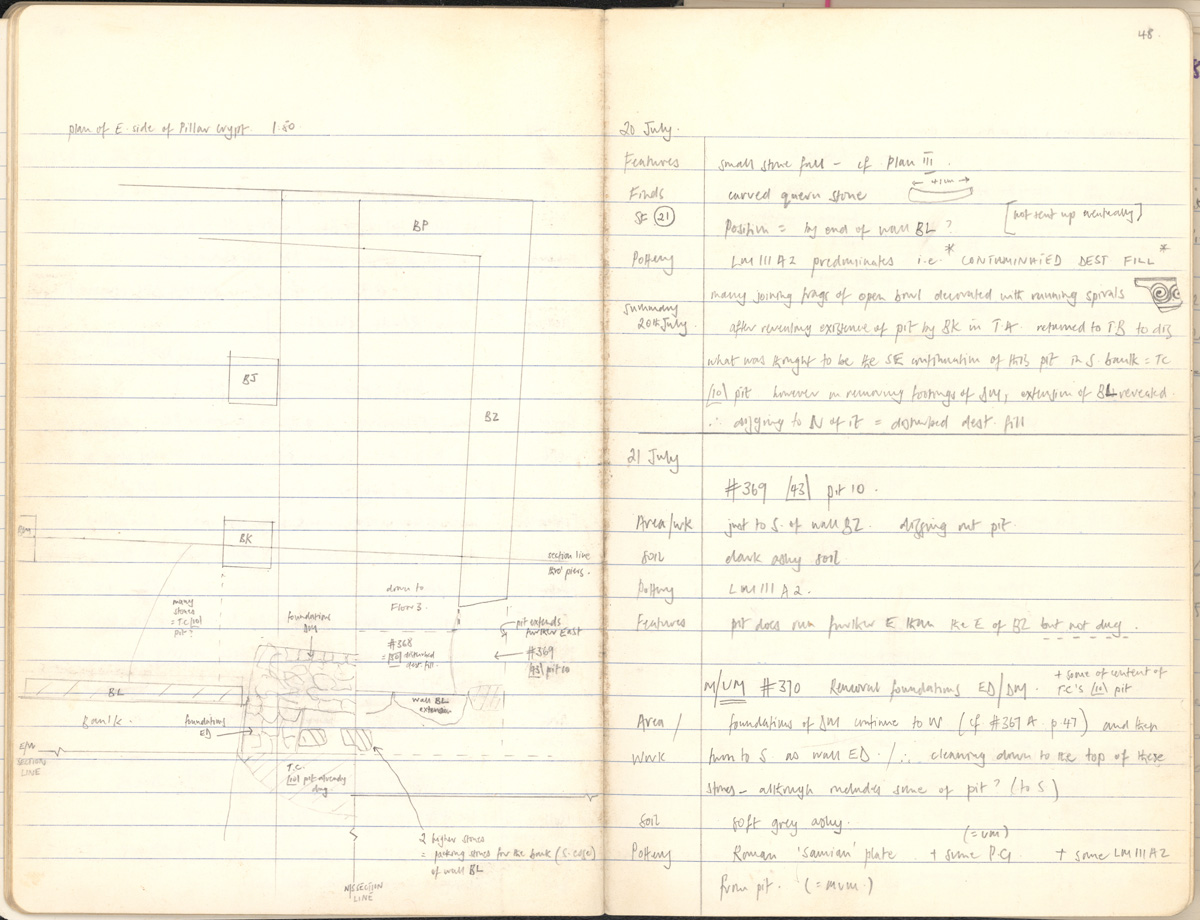 plan of E. side of Pillar Crypt 1:50
BP
BJ
BZ
BK
section line
thro' piers.
down to
Floor 3.
many
stones
= T.C. [10]
pit?
foundations
DM
pit extends
further East
#368
= [50] disturbed
dest. fill.
#369
[43] pit 10
BL
wall BL
extension
Baulk.
foundations
ED
E/W
SECTION
LINE
T.C.
[10] pit already
dug.
2 higher stones
= packing stones for the bank (S. edge)
of wall BL
N/S SECTION
LINE
48.
20 July.
Features small stone full - cf Plan III.
Finds curved quern stone
SF (21) Position = by end of wall BL? [not sent up eventually]
Pottery LM III A2 predominates i.e. * CONTAMINATED DEST FILL *
many joining frags of open bowl decorated with running spirals
Summary
20th July. after revealing existence of pit by BK in TA. returned to TB to dig
what was thought to be the SE continuation of this pit in S baulk = TC
[10] pit however on removing footings of DM, extension of BL revealed.
∴ digging to N of it = disturbed dest. fill
21 July
#369 [43] pit 10.
Area/wk just to S. of wall BZ. digging out pit.
Soil dark ashy soil
Pottery LM III A2.
Features pit does run further E than the E of BZ but not dug.
M/UM #370 Removal foundations ED/DM. + some of content of
T.C.'s [10] pit
Area / foundations of DM continue to W (cf #367A p.47) and then
Work turn to S. as wall ED. / ∴ cleaning down to the top of these
stones - although includes some of pit? (to S)
Soil soft grey ashy.
(= UM)
Pottery Roman 'Samian' plate + some P.G. + some LM III A2
from pit. (= MUM)